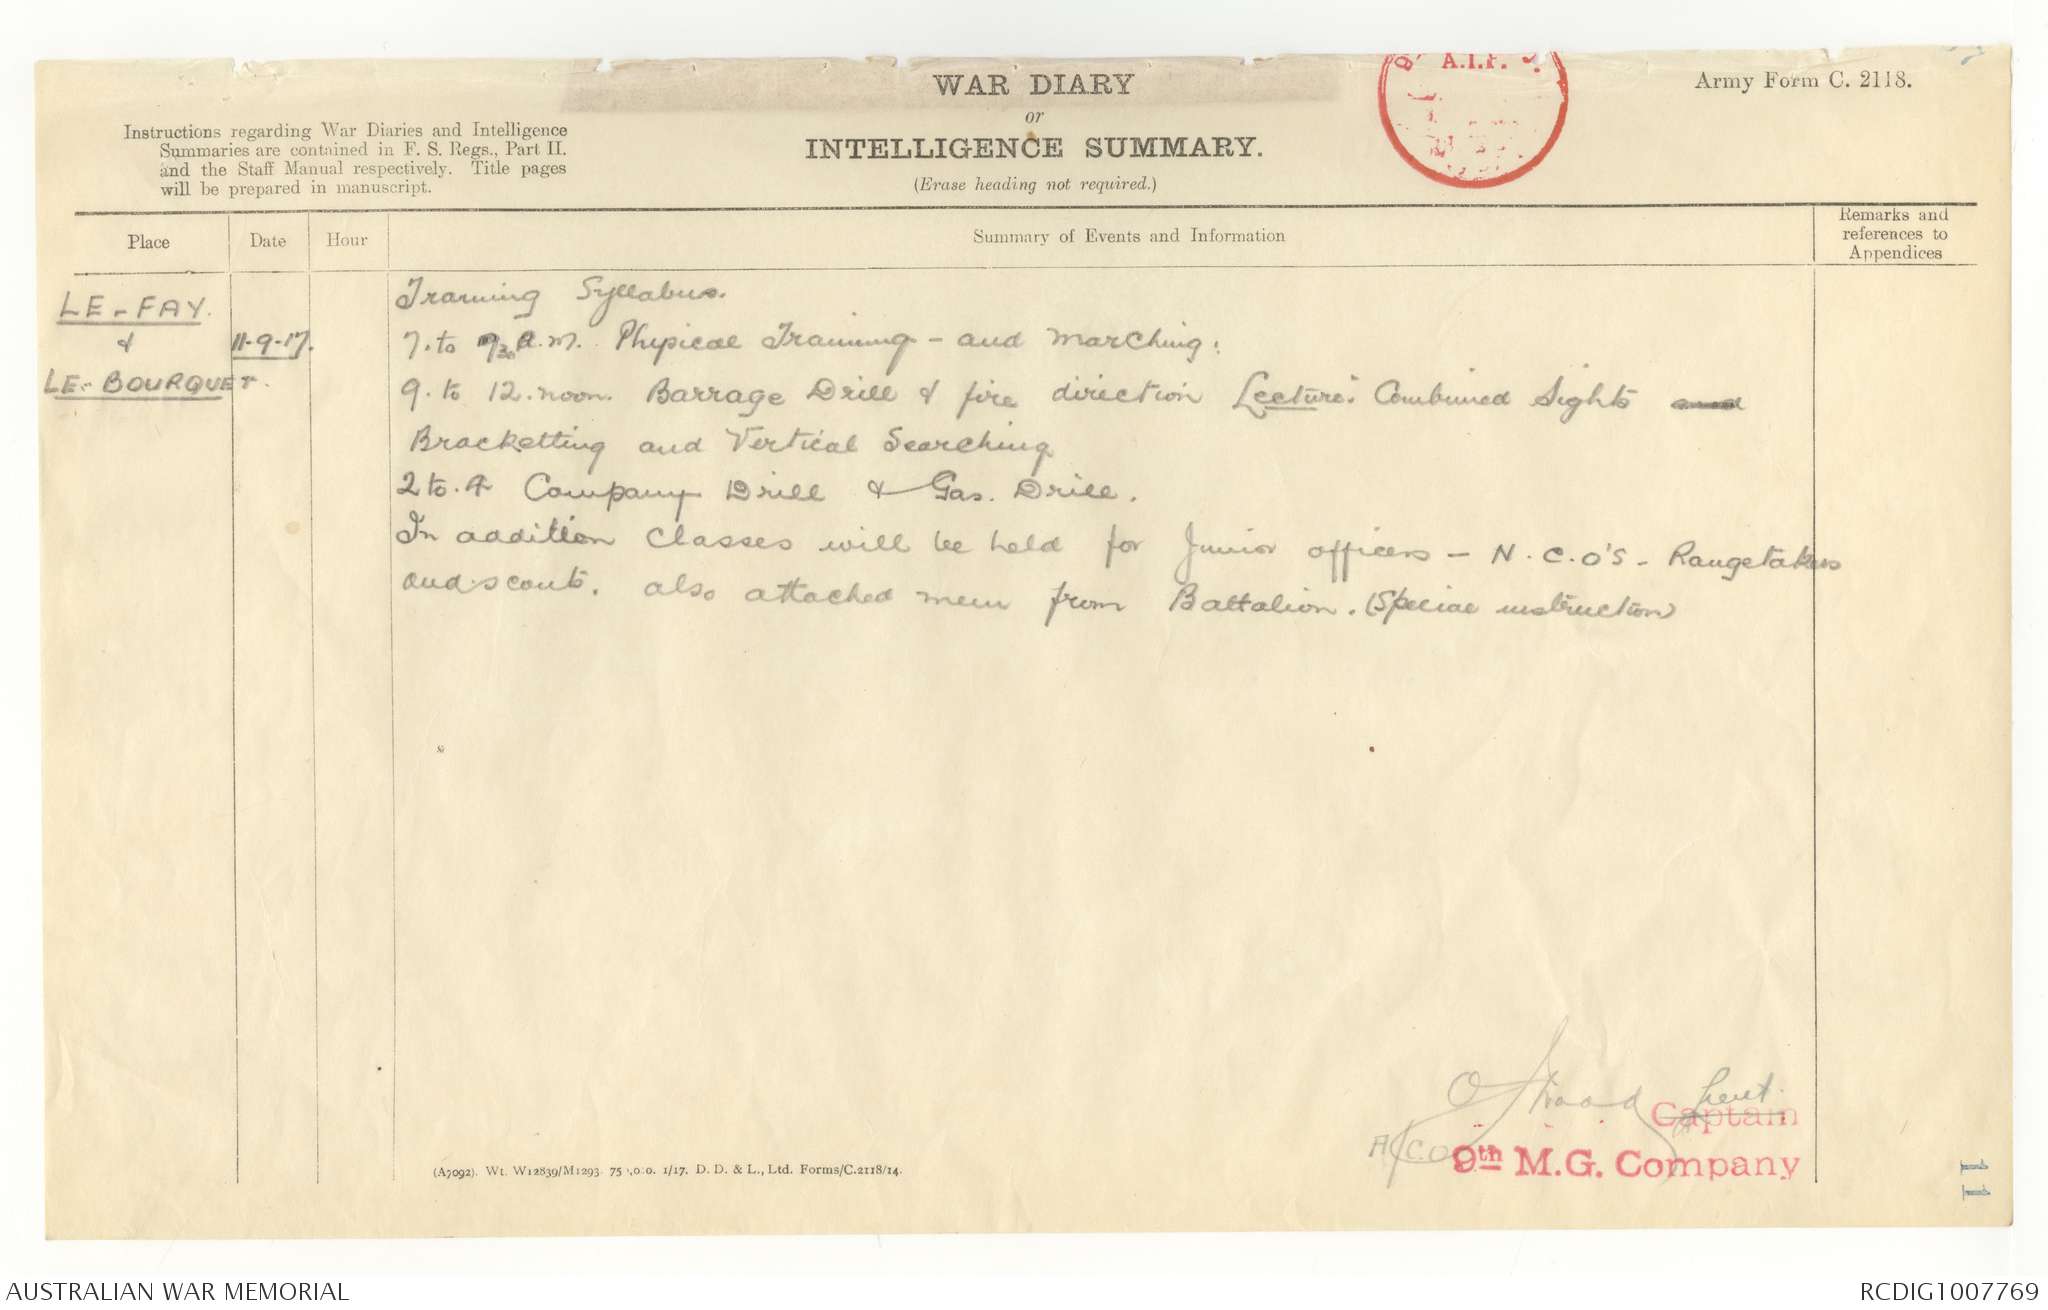 WAR DIARY
or
INTELLIGENCE SUMMARY.
(Erase heading not required.)
A.I.F.
Army Form C. 2118.
Instructions regarding War Diaries and Intelligence
Summaries are contained in F. S. Regs., Part II.
and the Staff Manual respectively. Title pages
will be prepared in manuscript.
Place
Date
Hour
Summary of Events and Information
Remarks and
references to
Appendices
LE-FAY.
&
LE-BOURQUET.
11-9-17.
Training Syllabus.
7. to 7.30 A.M. Physical Training - and Marching:
9. to 12. noon. Barrage Drill & fire direction Lecture: Combined Sights and
Bracketting and Vertical Searching
2 to. 4 Company Drill & Gas. Drill.
In addition classes will be held for Junior officers - N.C.O'S - Rangetakers
and scouts. also attached men from Battalion. (Special instruction)
Lieut.
Captain
A/C.O.
9th M.G. Company
(A7092). Wt. W12839/M1293. 75 ,0:0. 1/17. D. D. & L., Ltd. Forms/C.2118/14.
11
AUSTRALIAN WAR MEMORIAL
RCDIG1007769